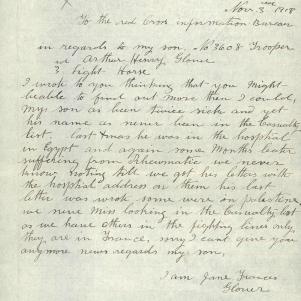 Nov. 3rd 1918
To the red Cross information Bureau
in regards to my son, No 3608 Trooper
Arthur Henry Glover
3 Light Horse
I wrote to you thinking that you might
beable to find out more then I could
my son as been twice sick and yet
his name as never been in the casualty
list, last Xmas he was in the hospital
in Egypt and again some months later
suffering from Rheumatic we never
know noting till we got his letters with
the hospital address on them his last
letter was wrote some were on palestine
we neve miss looking in the casualty list
as we have others in the fighting lines only
they are in France, sorry I cant give you
anymore news regards my son,
I am Jane Frances
Glover